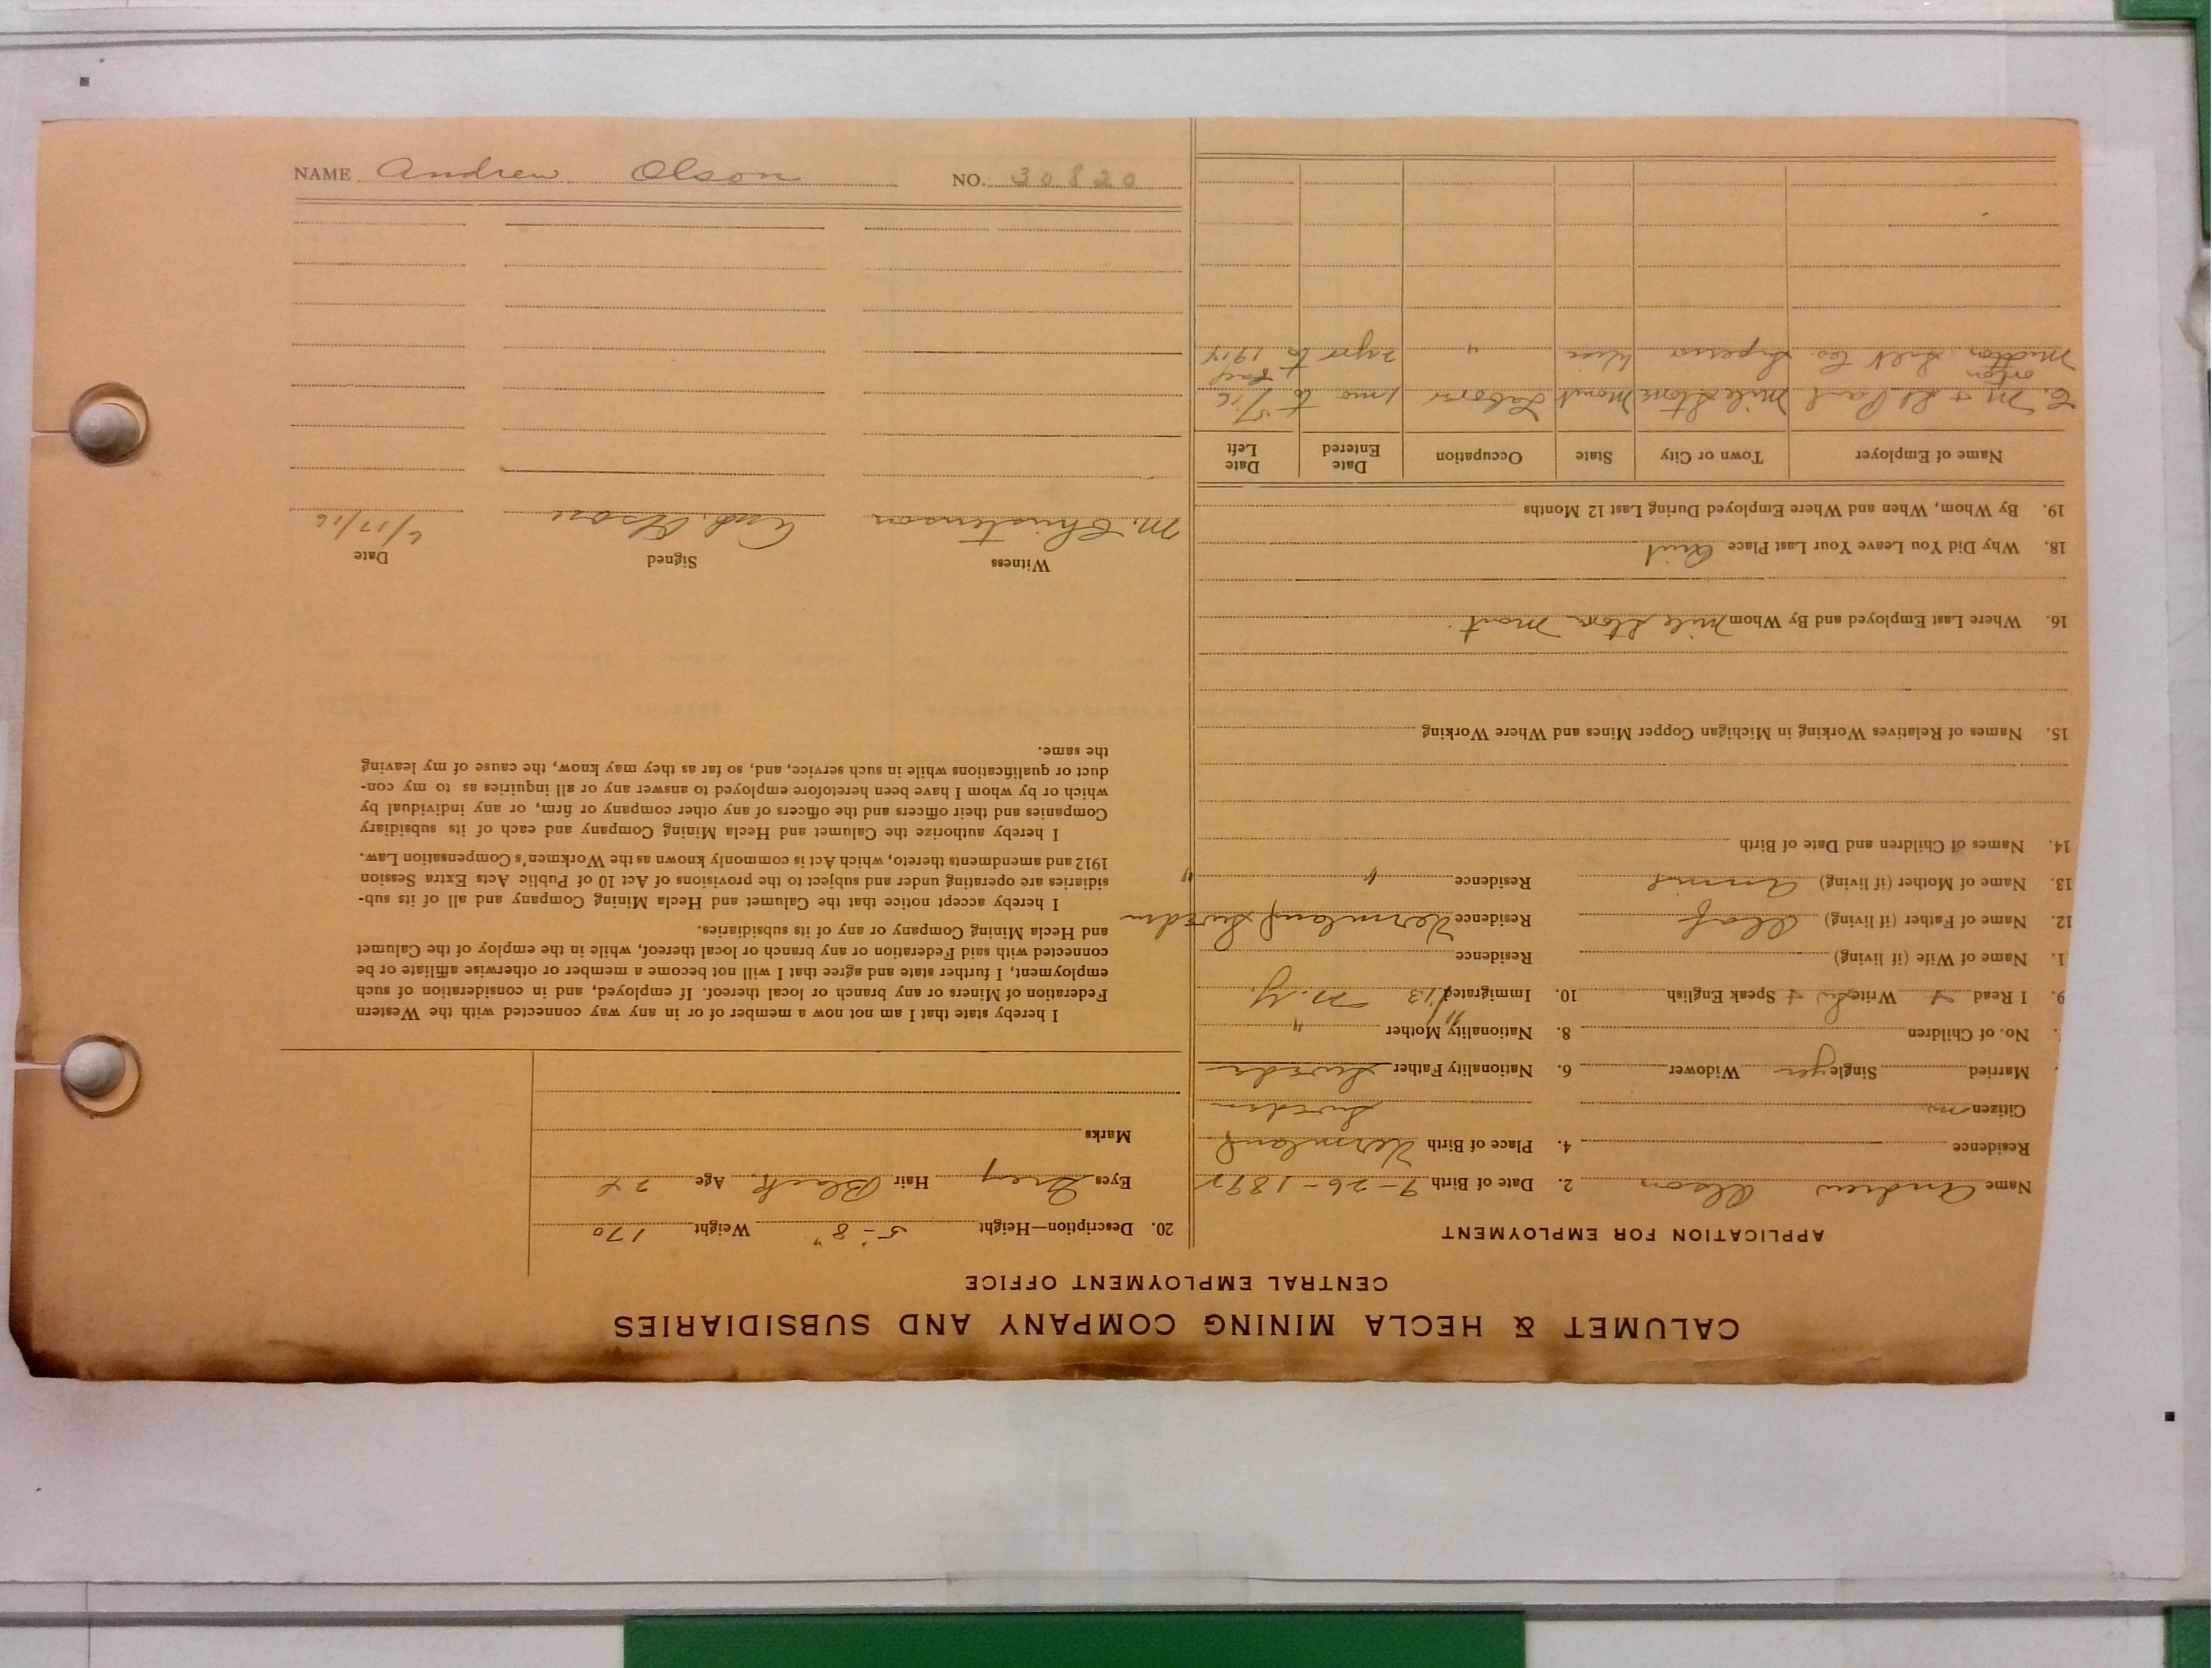 NAME Andrew Olson NO. 30820
CALUMET & HECLA MINING COMPANY AND SUBSIDIARIES
CENTRAL EMPLOYMENT OFFICE
APPLICATION FOR EMPLOYMENT
Name Andrew Olson 2. Date of Birth 9-26-189
Residence 4. Place of Birth Vermland
Citizen no Sweden
Married Single yes Widower 6. Nationality Father Swede
No. of Children 8. Nationality Mother "
9. I Read + Write Sw + Speak English 10. Immigrated /13 N.Y.
1. Name of Wife (if living) Residence
12. Name of Father (if living) Olof Residence Vermland Sweden
13. Name of Mother (if living) Residence " "
14. Names of Children and Date of Birth
15. Names of Relatives Working in Michigan Copper Mines and Where Working
16. Where Last Employed and By Whom Mile Ston Mont.
18. Why Did You Leave Your Last Place Quit
19. By Whom, When and Where Employed During Last 12 Months
Name of Employer Town or City State Occupation Date Entered Date Left
C. M + St Paul Mile Stone Mont Labor 1 mo to 5/16
Co. " 2 yr to
20. Description—Height 5-8" Weight 170
Eyes Grey Hair Black Age
Marks
I hereby state that I am not now a member of or in any way connected with the Western
Federation of Miners or any branch or local thereof. If employed, and in consideration of such
employment, I further state and agree that I will not become a member or otherwise affiliate or be
connected with said Federation or any branch or local thereof, while in the employ of the Calumet
and Hecla Mining Company or any of its subsidiaries.
I hereby accept notice that the Calumet and Hecla Mining Company and all of its sub-
sidiaries are operating under and subject to the provisions of Act 10 of Public Acts Extra Session
1912 and amendments thereto, which Act is commonly known as the Workmen's Compensation Law.
I hereby authorize the Calumet and Hecla Mining Company and each of its subsidiary
Companies and their officers and the officers of any other company or firm, or any individual by
which or by whom I have been heretofore employed to answer any or all inquiries as to my con-
duct or qualifications while in such service, and, so far as they may know, the cause of my leaving
the same.
Witness Signed Date
M. Christenson And. Olson 6/17/16